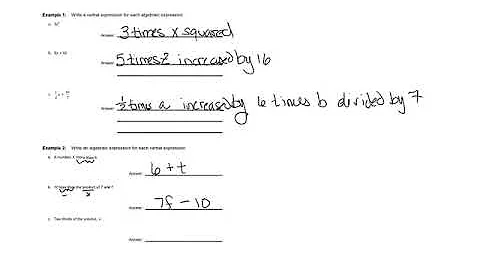 Example 1: Write a verbal expression for each algebraic expression.
a. 3x²
Answer: 3 times x squared
b. 5z + 16
Answer: 5 times z increased by 16
c.
Answer: ½ times a increased by 6 times b divided by 7
Example 2: Write an algebraic expression for each verbal expression.
a. A number t more than 6
Answer: 6 + t
b. 10 less than the product of 7 and f
Answer: 7f - 10
c. Two thirds of the volume, v
Answer: